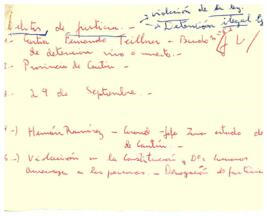 → violación de la ley.
Delitos de justicia. → Detención ilegal
Contra Fernando Teillier - Bando
de detención vivo o muerto. -
Provincia de Cautín. -
3- 29 de Septiembre. -
4-) Hernán Ramírez - Comand. Jefe Zona estado de
de Cautín. -
5-) Violación a la Constitución y Dºs humanos
amenaza a las personas. - Denegación de justicia